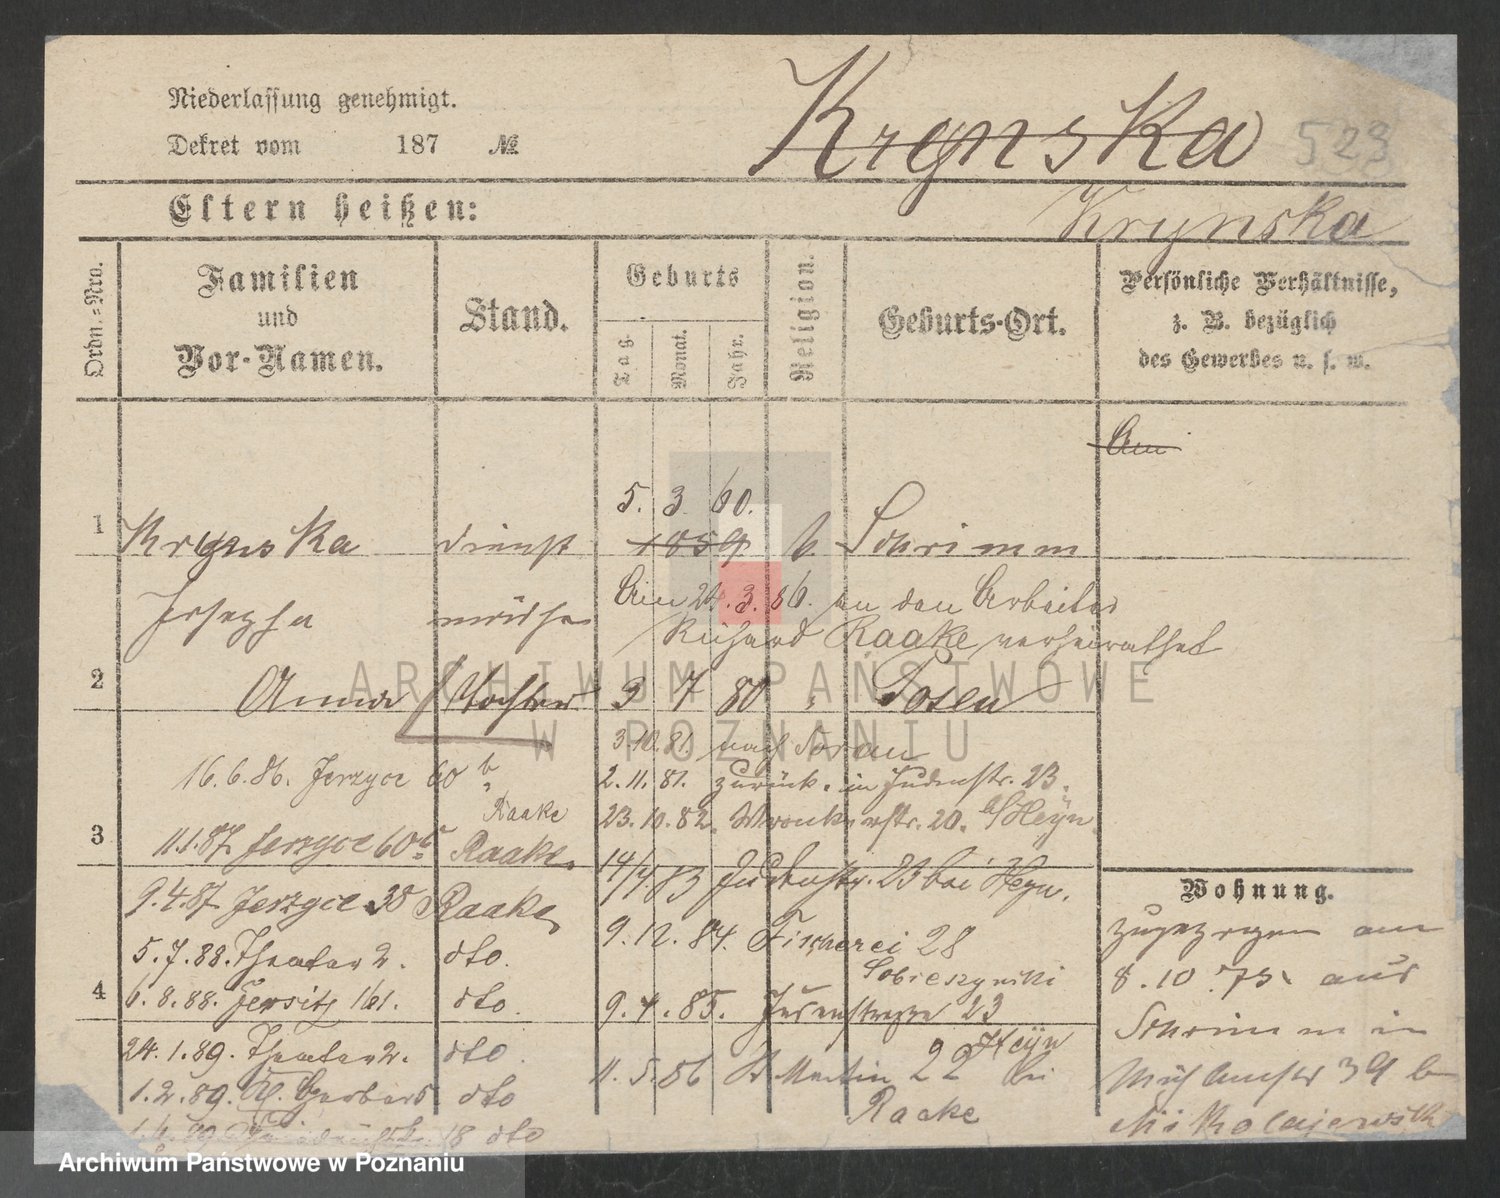 Niederlassung genehmigt.
Dekret vom 187 №
Krynska 523
Eltern heißen:
Krynska
Ordn.=Nro.
Familien
und
Vor-Namen.
Stand.
Geburts
Tag.
Monat.
Jahr.
Religion.
Geburts-Ort.
Persönliche Verhältnisse,
z. B. bezüglich
des Gewerbes u. s. w.
Am
5. 3 60.
1 Krynska dienst 1859 k. Schrimm
Josepha
Am 24.3.86. an den Arbeiter
Richard Raake verheirathet
2 Anna Tochter 9 7 80 Posen
3.10.81. nach Soran
16.6.86. Jerzyce 60 b
Raake
2.11.81. zurück. in Judenstr. 23.
23.10.82. Wronkerstr. 20. b/Heyn.
3
11.1.87 Jerzyce 60 b Raake
14/4 83 Judenstr. 23 bei Heyn.
Wohnung.
9.4.87 Jerzyce 38 Raake
9.12.84. Fischerei 28
Sobieszynski
zugezogen am
8.10.75. aus
Schrimm in
5.7.88. Theater 2. dto.
4
6.8.88. Jersitz 161. dto.
9.4.85. Judenstrasse 23
Heyn
24.1.89. Theater 2. dto.
11.5.86 St Martin 22 bei
Raake
39 b
Mikolajewski
1.2.89. Gr. Gerber 5 dto
18 dto
ARCHIWUM PAŃSTWOWE
W POZNANIU
Archiwum Państwowe w Poznaniu